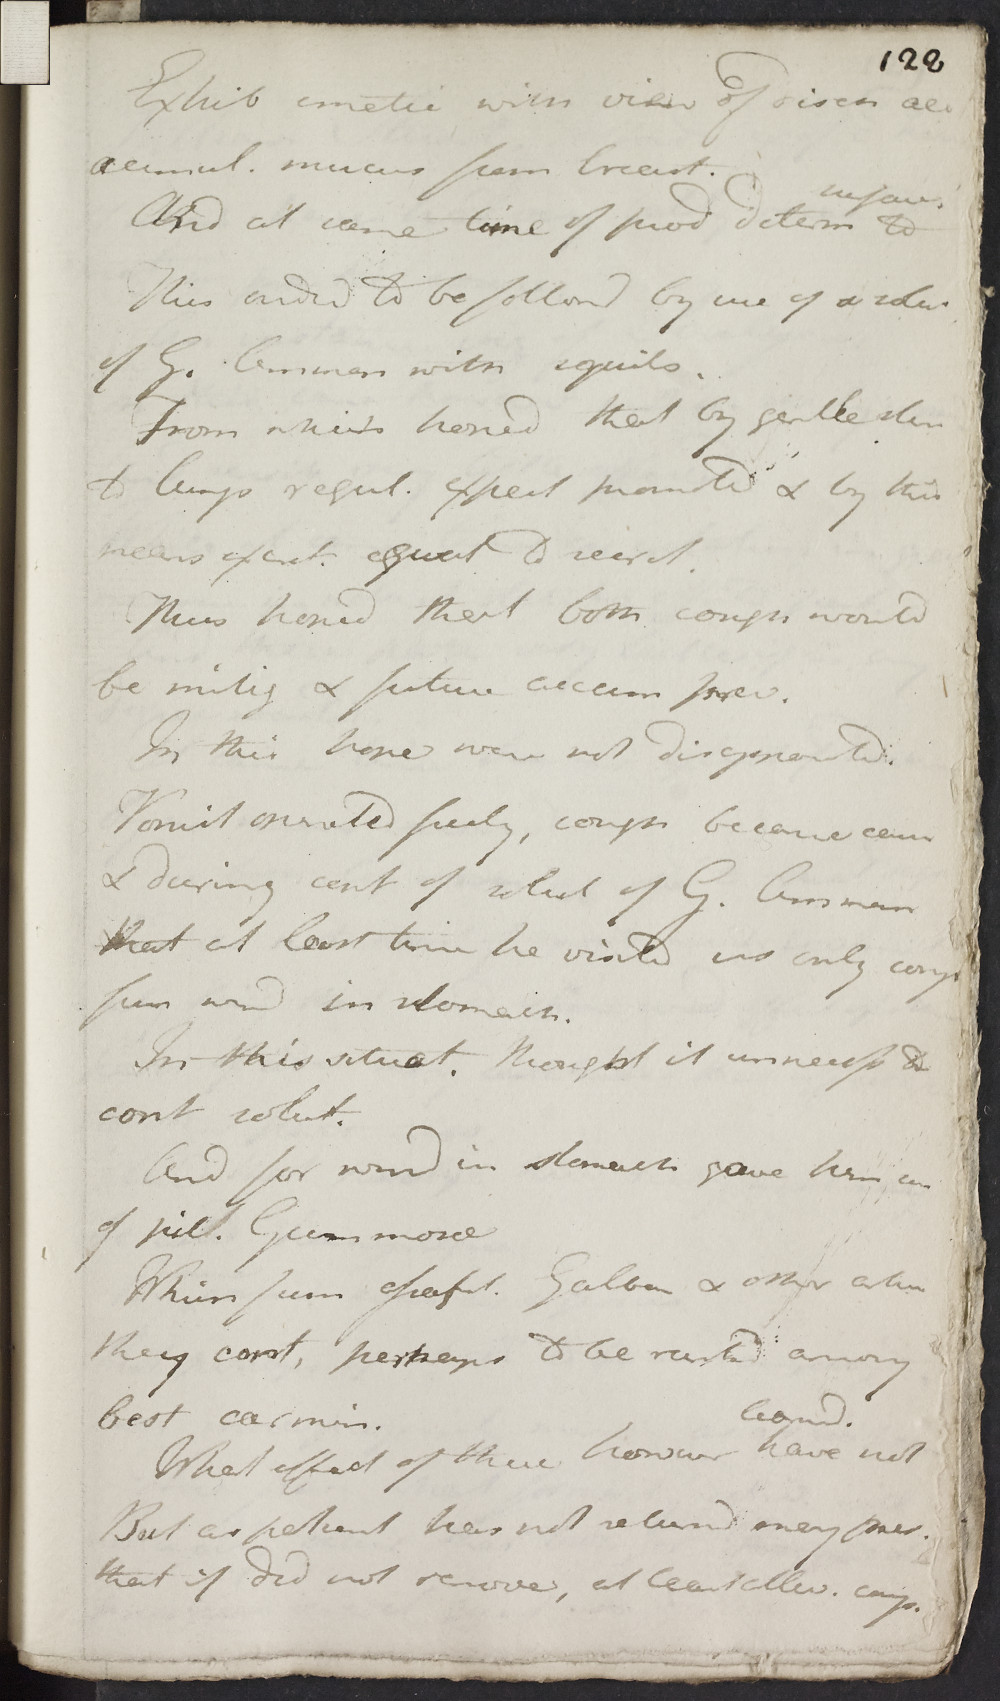 122
Exhib emetic with view of disch ac
acumul. mucus from breast.
And at same time of prod determ to
surface
This ordrd to be followd by use of a solu
of G. Ammon with squils.
From which hoped that by gentle stim
to lungs regul. expect promoted & by this
means excret. equal to secret.
Thus hoped that both cough would
be mitig & future accum prev.
In this hope were not disapointed.
Vomit operated freely, cough became easier
& during cont of solut of G. Ammon
that at last time he visited us only comp
from wind in stomach.
In this situat. thought it unnecess to
cont solut.
And for wind in stomach gave him
of pill. Gummosæ
Which from Asafet. Galban & other
they cont, perhaps to be rankd among
best carmin.
What effect of these however have not
learnd.
But as patient has not returnd may pres.
that if did not remove, at least allev. comp.